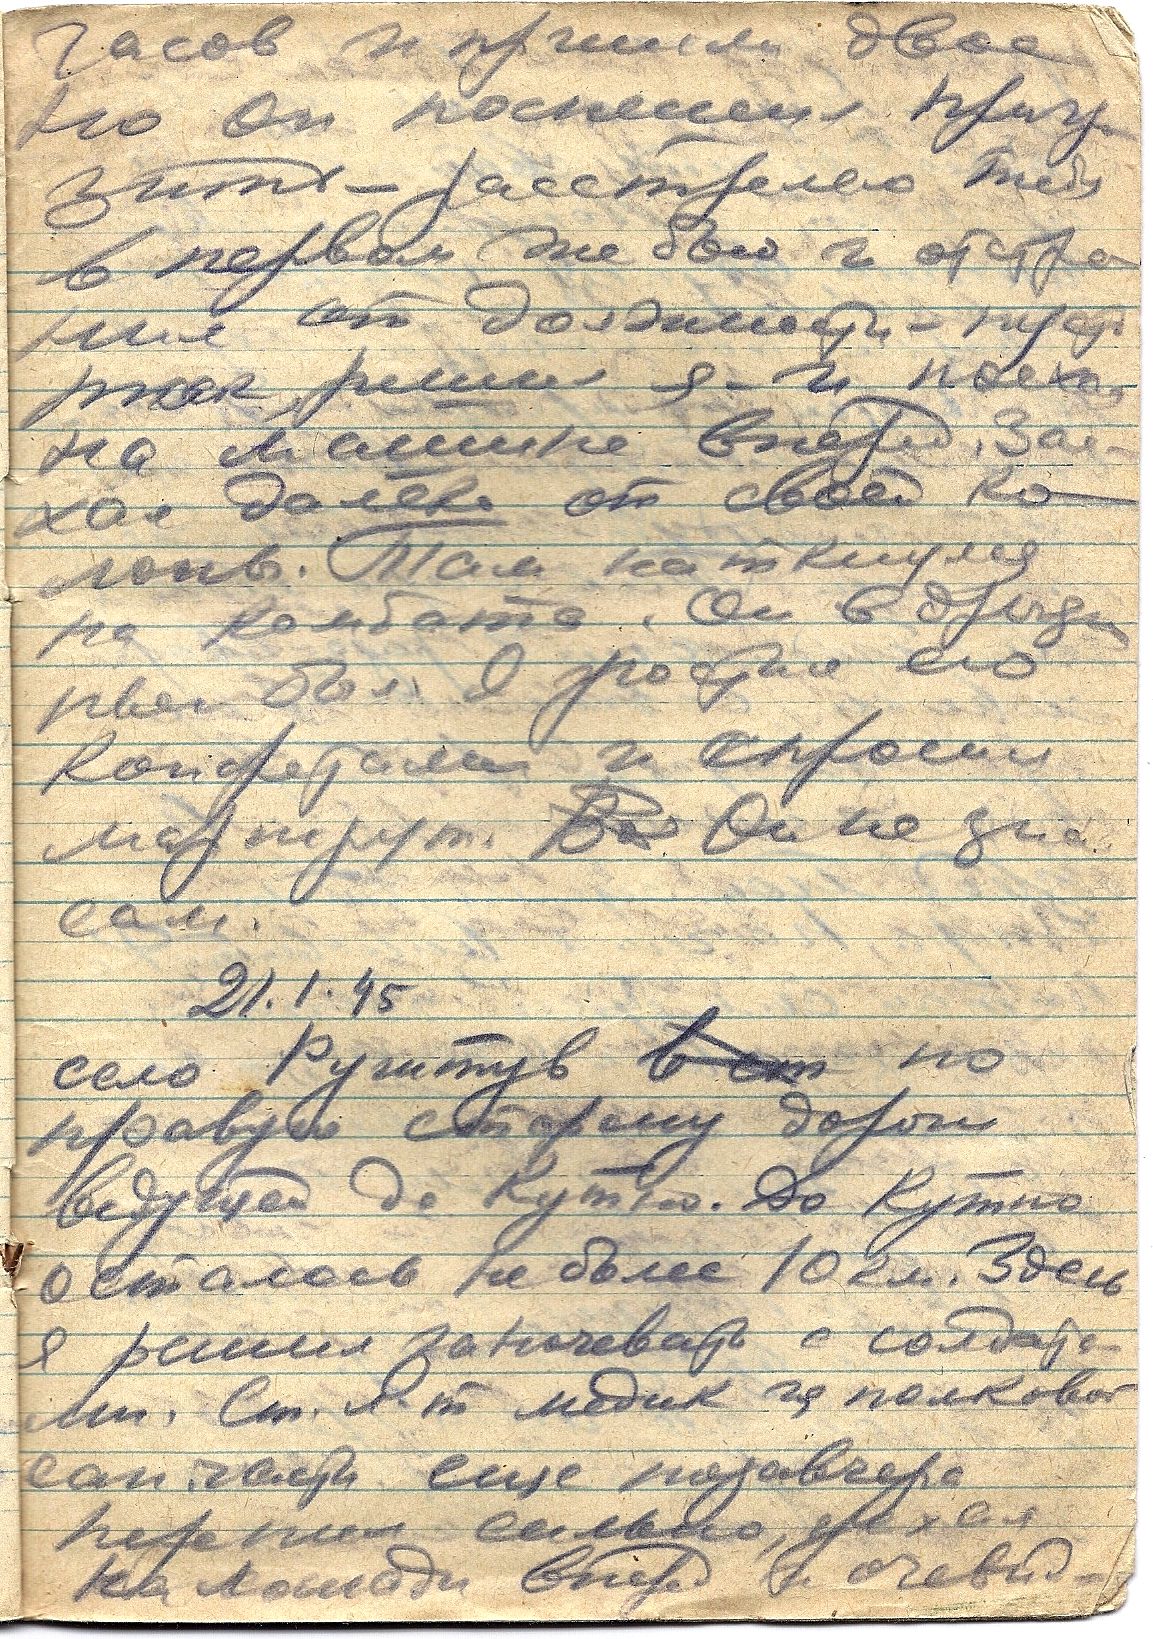 часов и пришли двое
но он поспешил пригро-
зить – расстреляю тебя
в первом же бою и отстра
нил от должности –
решил я – и поехал
на машине вперед. Зае-
хал далёко от своей ко-
лоны. Там наткнулся
на комбата. Он в
был. Я угостил его
конфетами и спросил
маршрут. Он не знал
сам.
21.1.45
село Ружитув в ст по
правую сторону дороги
ведущей до Кутно. До Кутно
осталось не более 10 км. Здесь
я решил заночевать с солдата-
ми. Ст. л-т медик из полковой
сан. части еще позавчера
перепил сильно, уехал
на лошади вперед и очевид-